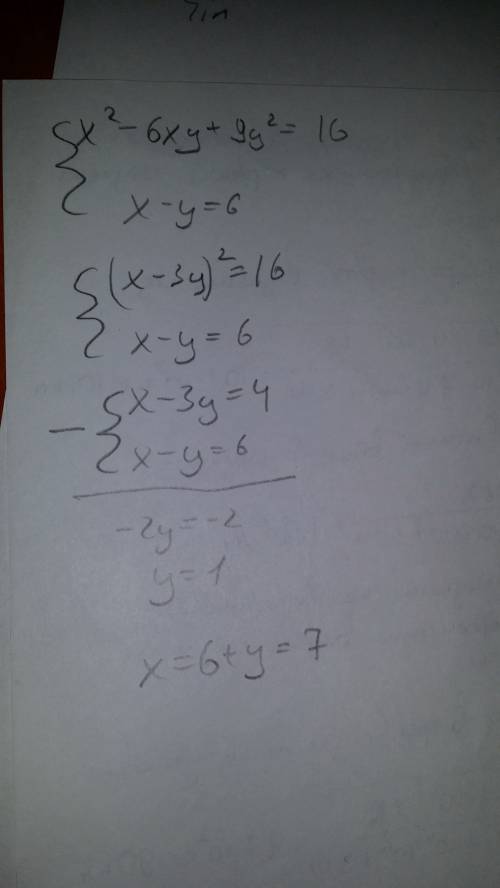 x² - 6xy + 9y² = 16
x - y = 6
(x - 3y)² = 16
x - y = 6
- x - 3y = 4
x - y = 6
-2y = -2
y = 1
x = 6 + y = 7